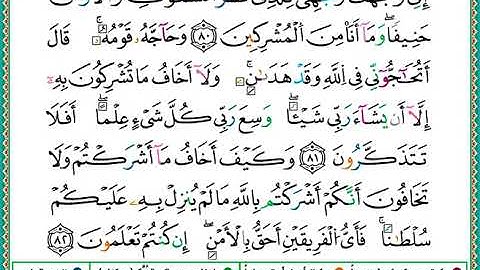 حَنِيفًا وَمَا أَنَا مِنَ الْمُشْرِكِينَ ٨٠ وَحَاجَّهُ قَوْمُهُ قَالَ
أَتُحَاجُّونِّي فِي اللَّهِ وَقَدْ هَدَىٰنِ وَلَا أَخَافُ مَا تُشْرِكُونَ بِهِ
إِلَّا أَن يَشَاءَ رَبِّي شَيْئًا وَسِعَ رَبِّي كُلَّ شَيْءٍ عِلْمًا أَفَلَا
تَتَذَكَّرُونَ ٨١ وَكَيْفَ أَخَافُ مَا أَشْرَكْتُمْ وَلَا
تَخَافُونَ أَنَّكُمْ أَشْرَكْتُم بِاللَّهِ مَا لَمْ يُنزِلْ بِهِ عَلَيْكُمْ
سُلْطَٰنًا فَأَيُّ الْفَرِيقَيْنِ أَحَقُّ بِالْأَمْنِ إِن كُنتُمْ تَعْلَمُونَ ٨٢